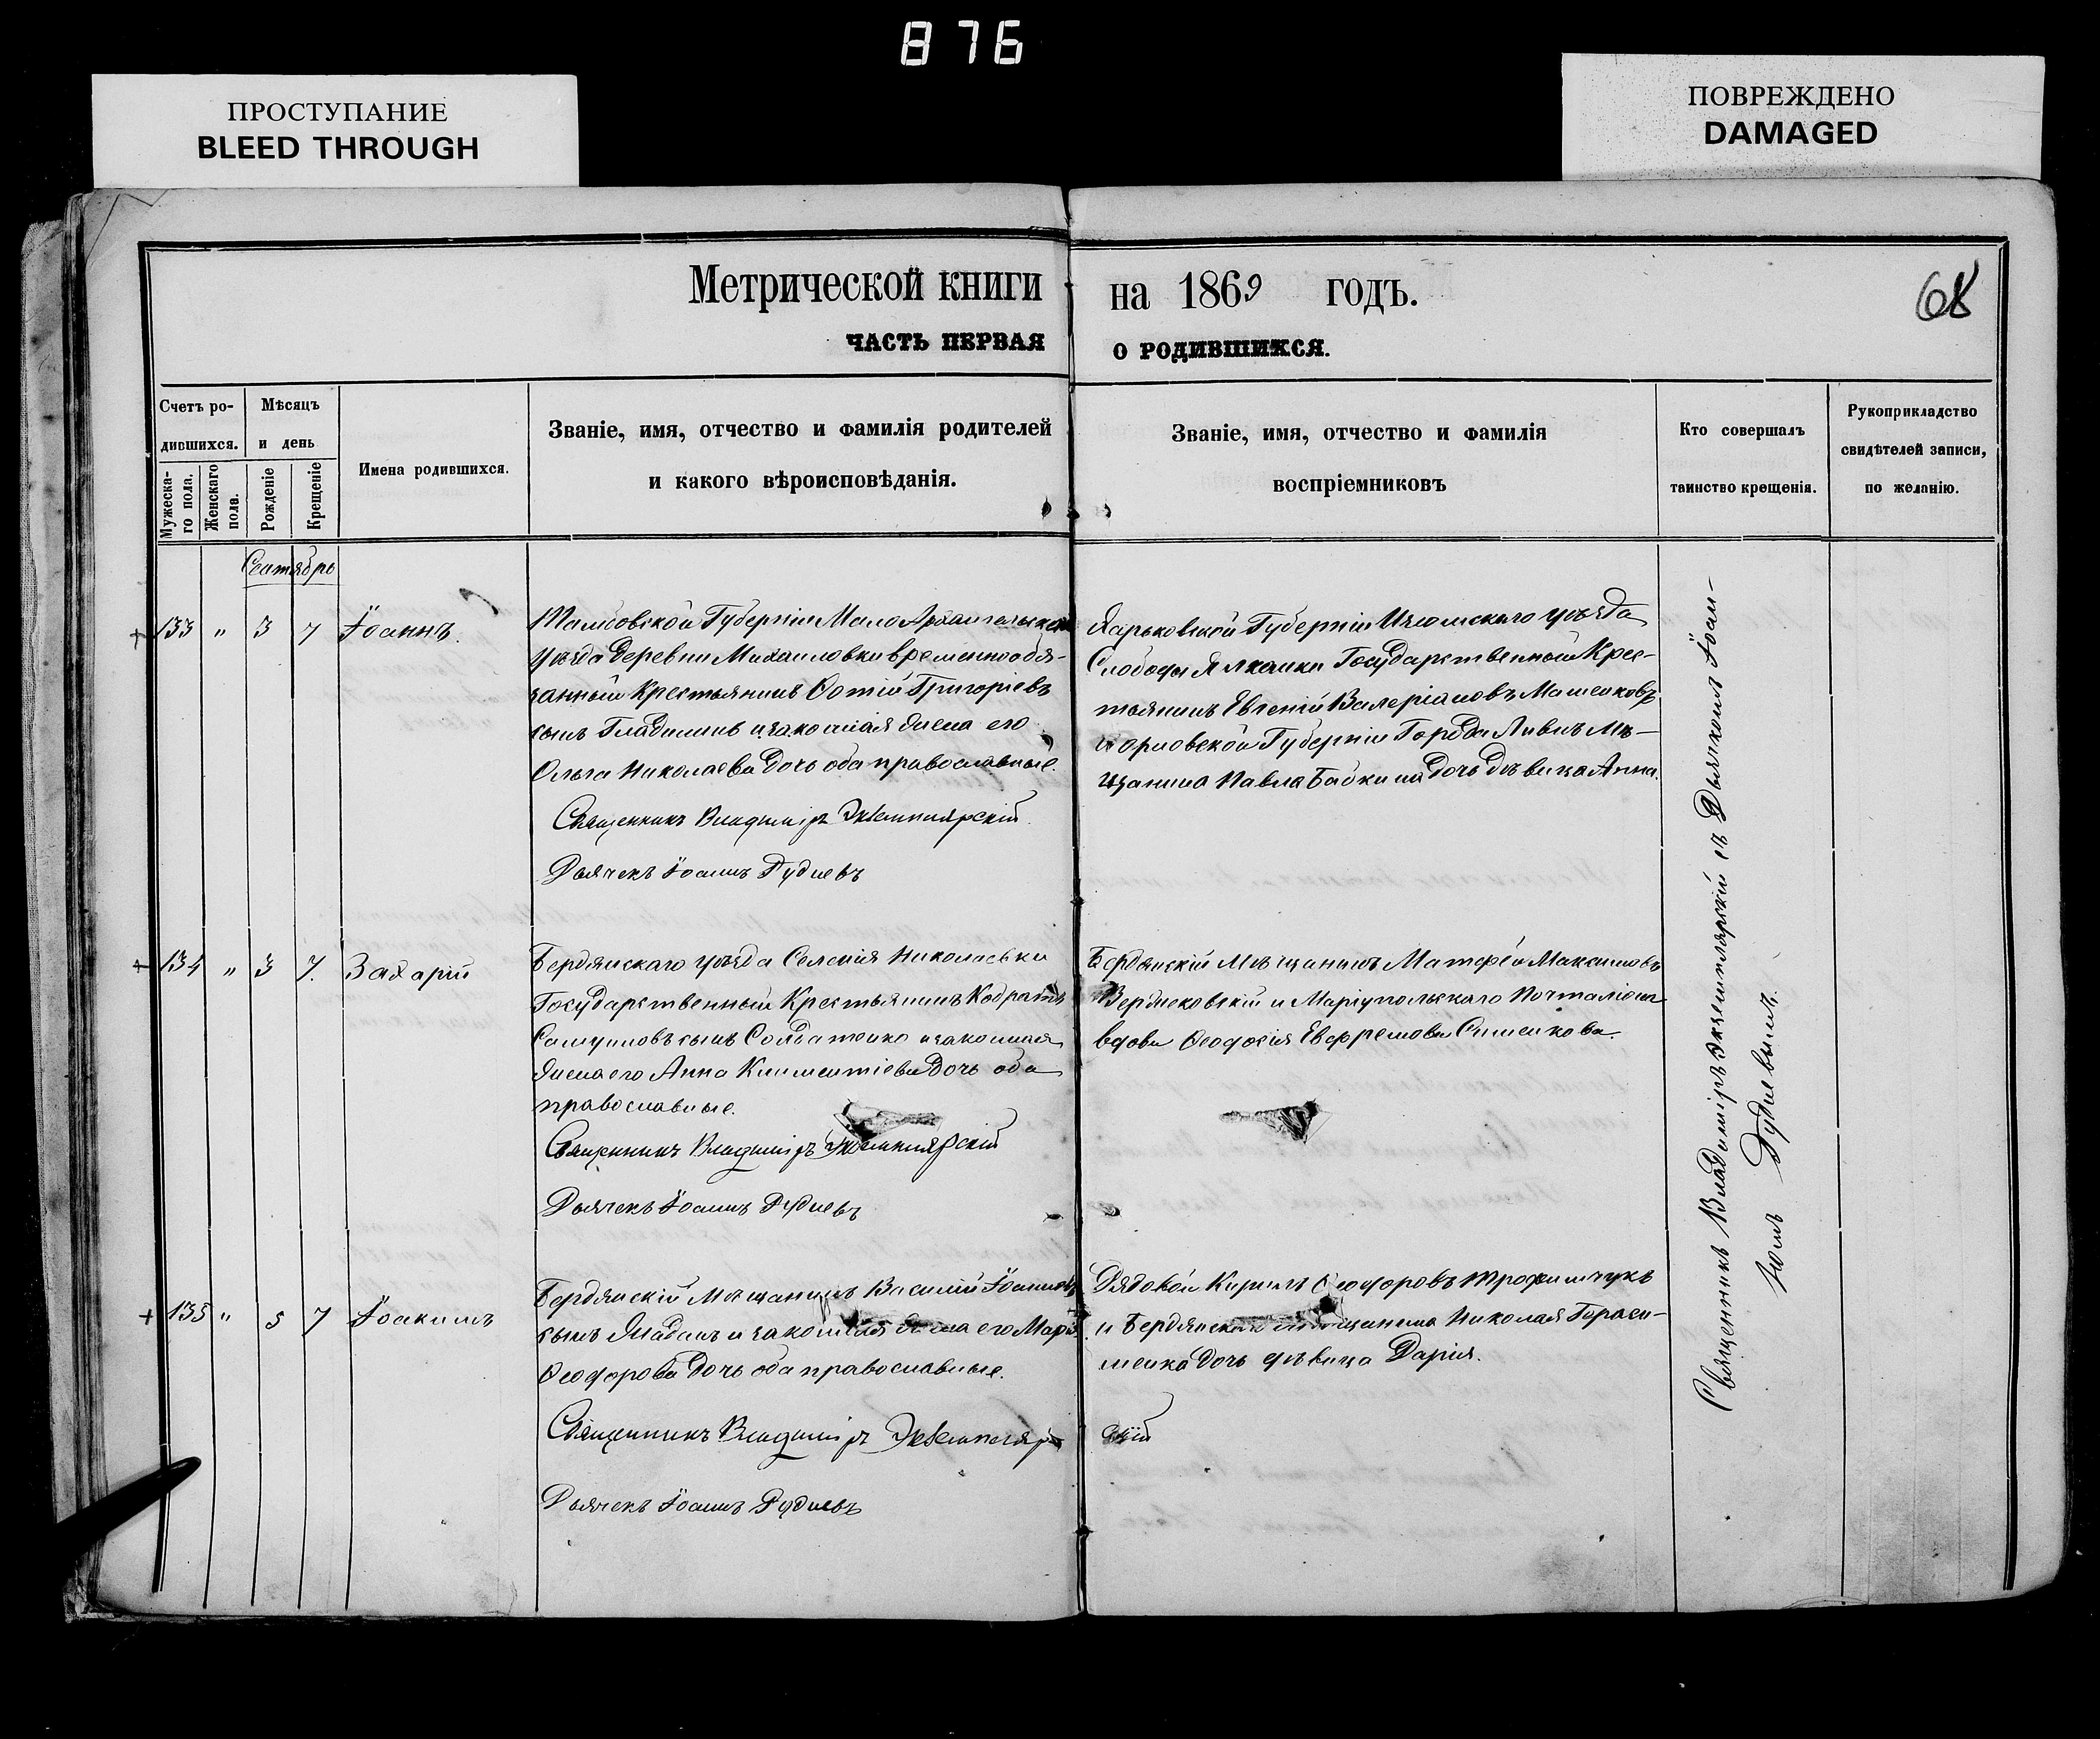 876
ПРОСТУПАНИЕ
BLEED THROUGH
ПОВРЕЖДЕНО
DAMAGED
Метрической книги на 1869 годъ.
68
ЧАСТЬ ПЕРВАЯ О РОДИВШИХСЯ.
Счетъ родившихся.
Мужескаго пола.
Женскаго пола.
Мѣсяцъ и день
Рожденіе
Крещеніе
Имена родившихся.
Званіе, имя, отчество и фамилія родителей
и какого вѣроисповѣданія.
Званіе, имя, отчество и фамилія
воспріемниковъ
Кто совершалъ
таинство крещенія.
Рукоприкладство
свидѣтелей записи,
по желанію.
Сентябрь
133 " 3 7 Іоаннъ.
Тамбовской Губерніи Мало Архангельскаго
уѣзда деревни Михаиловки временнообя-
занный Крестьянинъ Фотій Григоріевъ
сынъ Гладилинъ и законная жена его
Ольга Николаева дочь оба православные.
Священникъ Владиміръ Экземплярскій
Дьячекъ Іоаннъ Рудневъ
Харьковской Губерніи Изюмскаго уѣзда
Слободы Государственный Крес-
тьянинъ Евгеній Валеріановъ Машенковъ
и орловской Губерніи Города Ливнъ Мѣ-
щанина Павла Бабкина дочь дѣвица Анна.
134 " 3 7. Захарій
Бердянскаго уѣзда Селенія Николаевки
Государственный Крестьянинъ Кодратъ
Самуиловъ сынъ Солдатенко и законная
жена его Анна Климентіева дочь оба
православные.
Священникъ Владиміръ Экземплярскій
Дьячекъ Іоаннъ Рудневъ
Бердянскій Мѣщанинъ Матфей Максимовъ
и Маріупольскаго Почталіона
вдова Ѳеодосія Евфремова Сименкова.
135 " 5 7 Іоакимъ
Бердянскій Мѣщанинъ Василій Іоанновъ
сынъ Жаданъ и законная жена его Марія
Ѳеодорова дочь оба православные.
Священникъ Владиміръ Экземплярскій
Дьячекъ Іоаннъ Рудневъ
Рядовой Кирилъ Ѳеодоровъ Трофимчукъ
и Бердянскаго мѣщанина Николая Гераси-
менка дочь дѣвица Дарія.
Священникъ Владиміръ Экземплярскій съ Дьячкомъ Іоан-
номъ Рудневымъ.